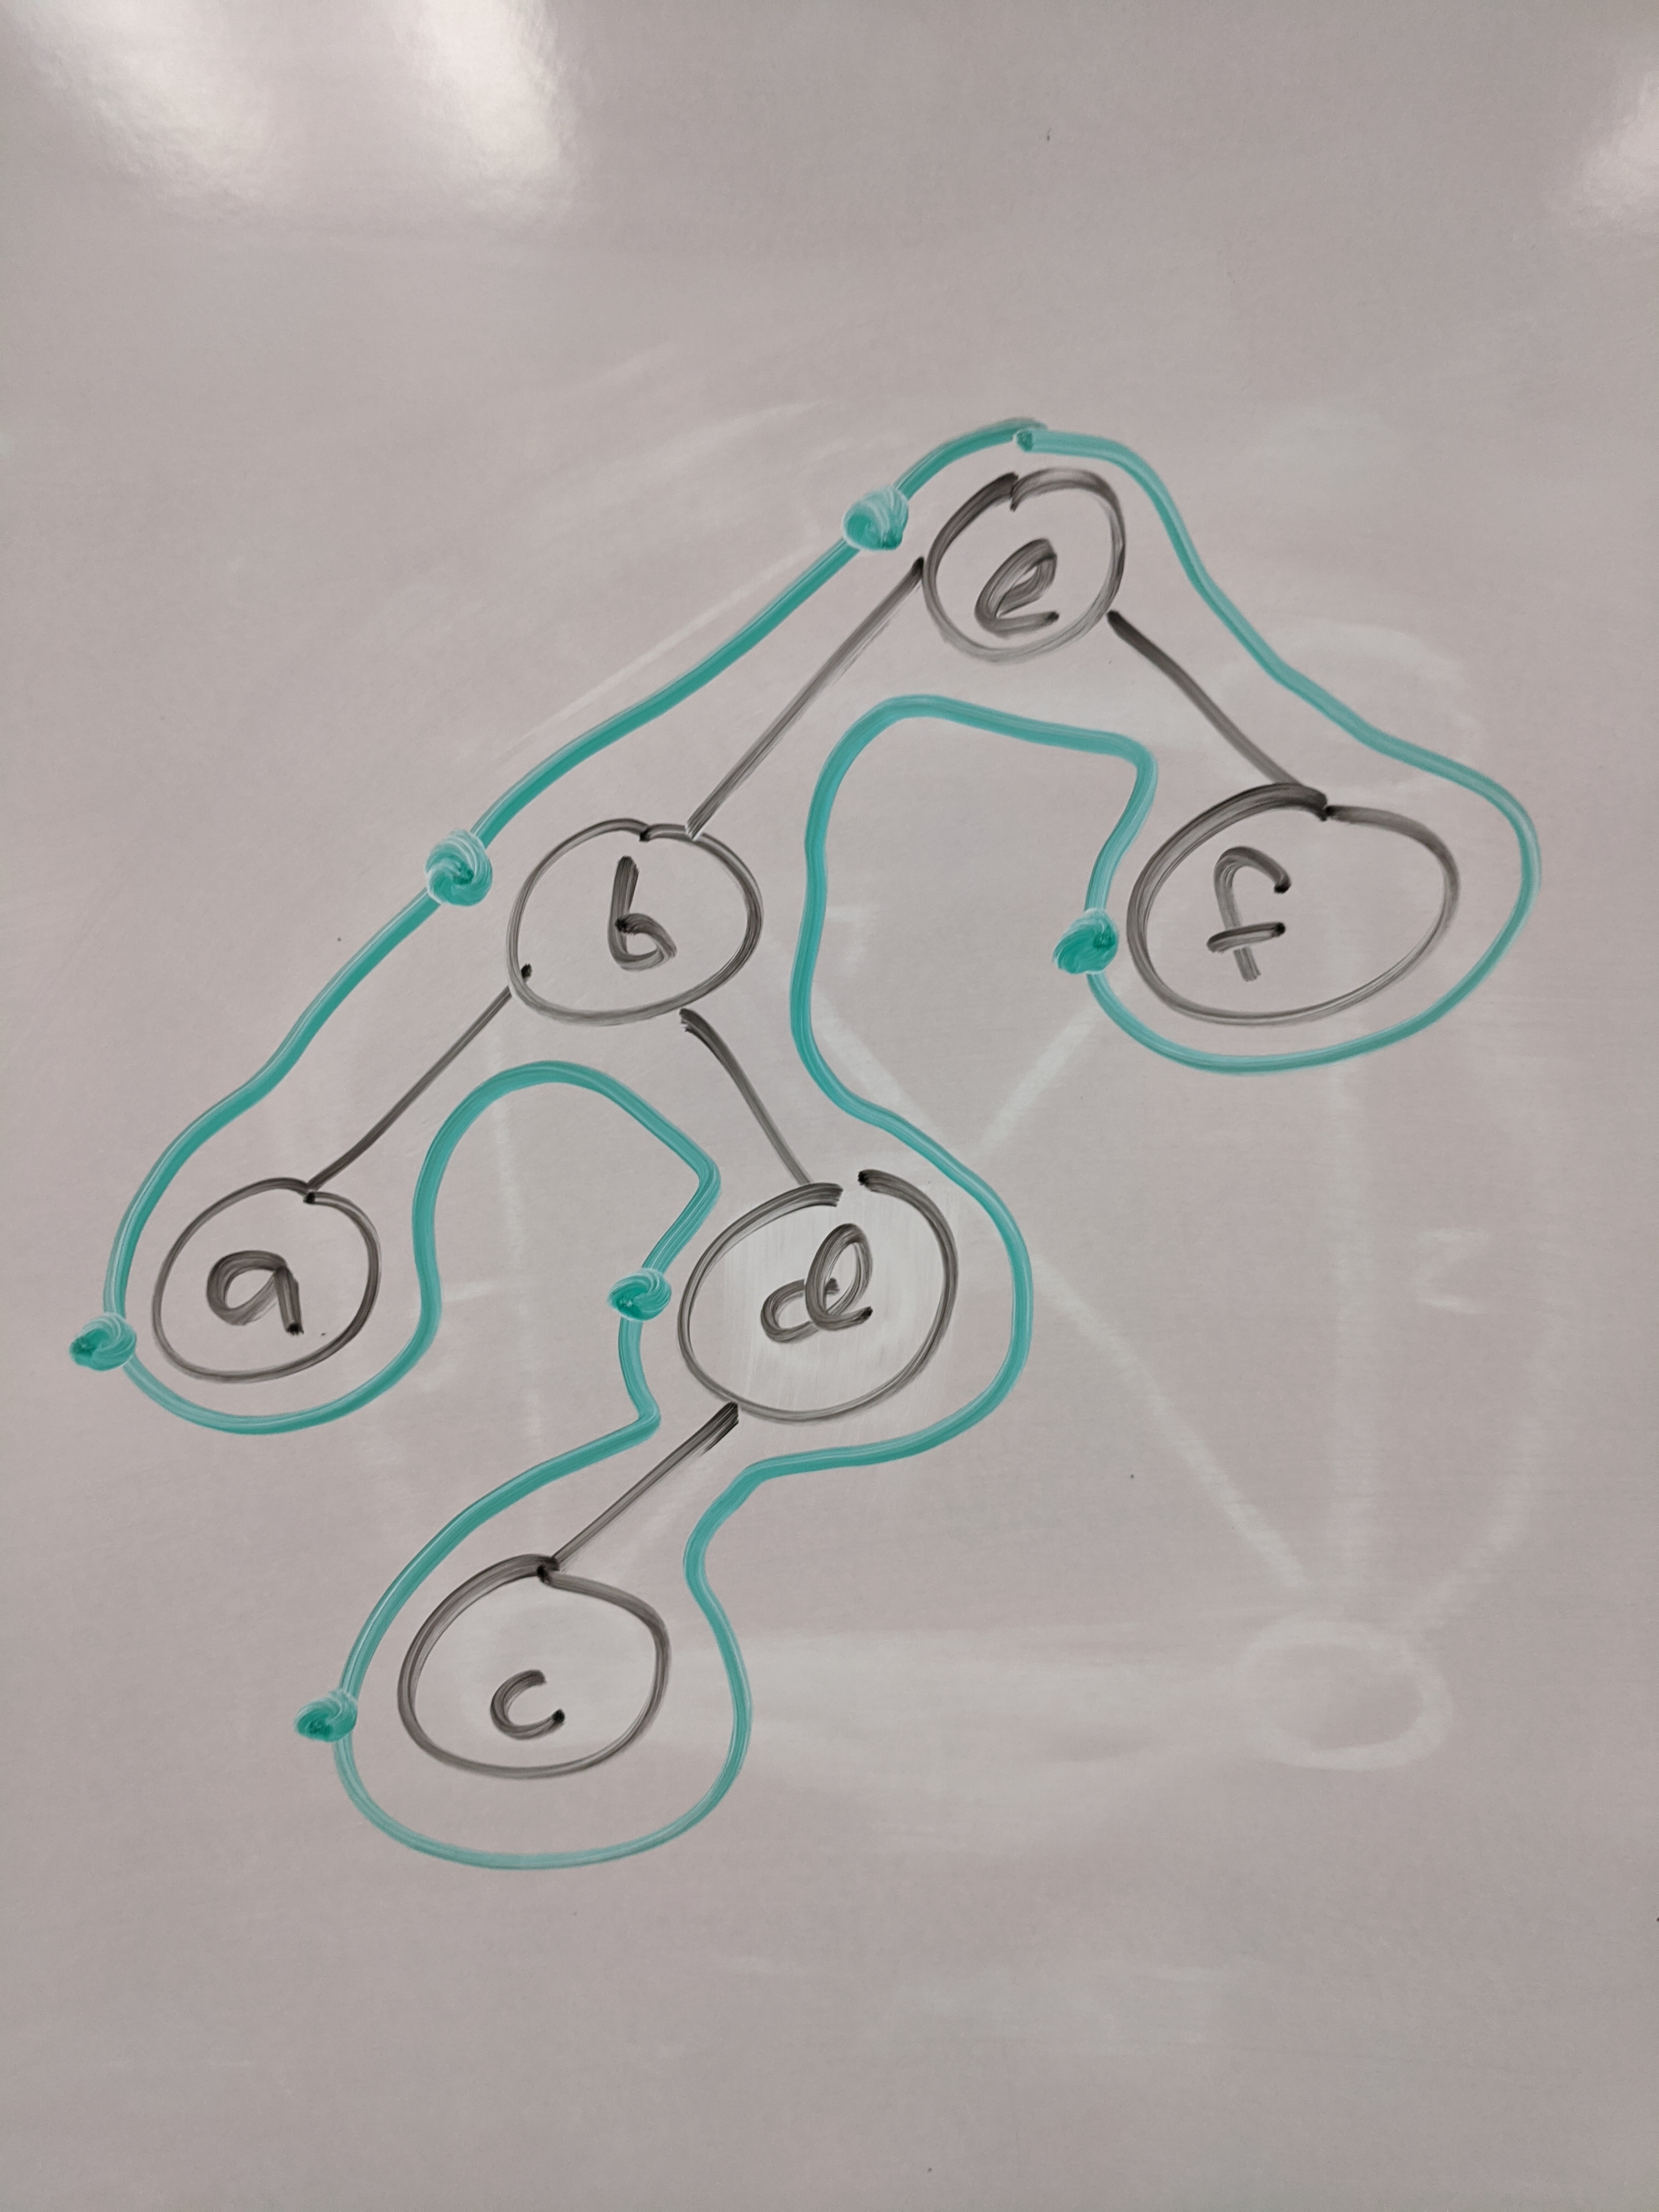 e
b
f
a
d
c